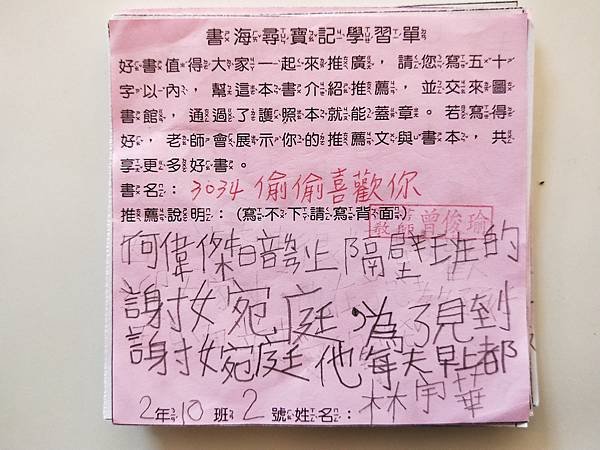 書海尋寶記學習單
好書值得大家一起來推廣，請您寫五十
字以內，幫這本書介紹推薦，並交來圖
書館，通過了護照本就能蓋章。若寫得
好，老師會展示你的推薦文與書本，共
享更多好書。
書名：3034偷偷喜歡你
推薦說明：（寫不下請寫背面）
教師曾俊瑜
何偉傑暗戀上隔壁班的
謝宛庭，為了見到
謝宛庭他每天早上都
2年10班2號姓名：林宇華